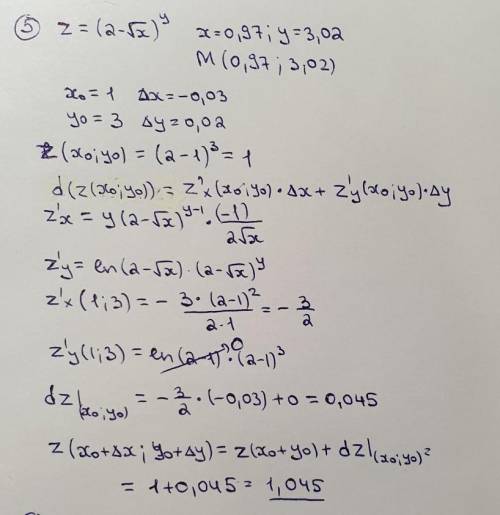 ⑤ z = (2-√x)^y x=0,97; y=3,02
M(0,97; 3,02)
x₀ = 1 Δx = -0,03
y₀ = 3 Δy = 0,02
z(x₀;y₀) = (2-1)³ = 1
d(z(x₀;y₀)) = z'ₓ(x₀;y₀)·Δx + z'y(x₀;y₀)·Δy
z'x = y(2-√x)^(y-1) · (-1)/(2√x)
z'y = ln(2-√x)·(2-√x)^y
z'ₓ(1;3) = - (3·(2-1)²)/(2·1) = - 3/2
z'y(1;3) = ln(2-1)⁰·(2-1)³
dz|(x₀;y₀) = - 3/2 · (-0,03) + 0 = 0,045
z(x₀+Δx; y₀+Δy) = z(x₀+y₀) + dz|(x₀;y₀) =
= 1+0,045 = 1,045